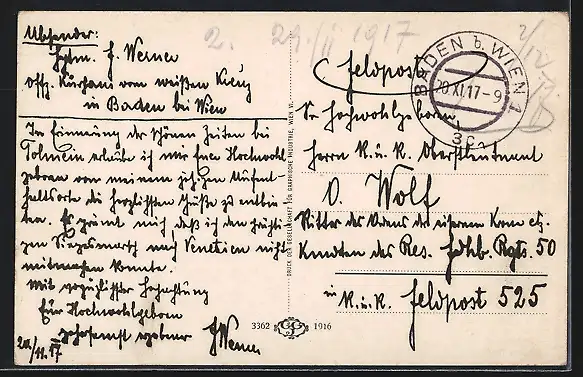 Absender:
Hptm. J. Werner
Offz. Kurhaus vom weißen Kreuz
in Baden bei Wien
In Erinnerung der schönen Zeiten bei
Tolmein erlaube ich mir Euer Hochwohl-
geboren von meinem jetzigen Aufent-
haltsorte die herzlichsten Grüße zu entbie-
ten. Es grämt mich daß ich den
gen Siegesmarsch nach Venetien nicht
mitmachen konnte.
Mit vorzüglichster Hochachtung
Euer Hochwohlgeboren
gehorsamst ergebener
JWerner
20./11.17
2. 29/11 1917
Feldpost
BADEN b. WIEN 1
20.XI.17-9
Sr Hochwohlgeboren
Herrn K.u.K. Oberstleutnant
O. Wolf
Ritter des Ordens der eisernen Krone etz.
Kmdten des Res. Fdhb. Rgts. 50
K.u.K. Feldpost 525
DRUCK DER GESELLSCHAFT FÜR GRAPHISCHE INDUSTRIE, WIEN VI.
3362 1916